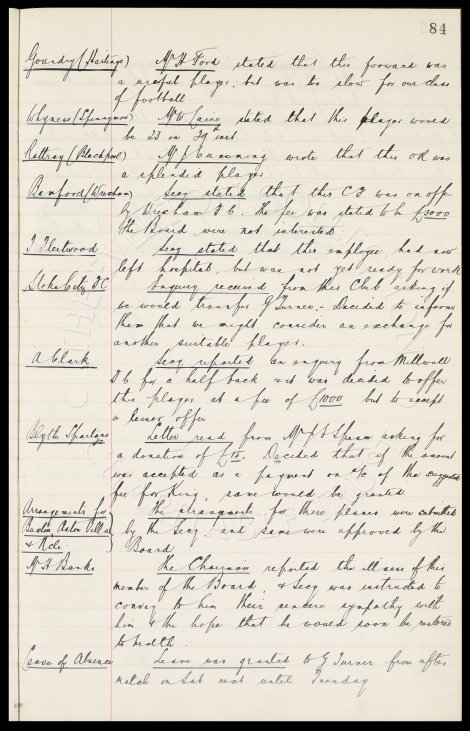 84
Goundry (Hastings) Mr H Ford stated that this forward was
a useful player, but was to slow for our class
of football
Whyness (Spennymoor) Mr W Caine stated that this player would
be 23 on 29th inst
Rattray (Blackpool) Mr J Cumming wrote that this OR was
a splendid player
Bamford (Wrexham) Secy stated that this CF was on offer
by Wrexham F C. The fee was stated to be £3000
The Board were not interested
T Fleetwood Secy stated that this employee had now
left hospital, but was not yet ready for work
Stoke City FC Enquiry received from this Club asking if
we would transfer G Turner:- Decided to inform
them that we might consider an exchange for
another suitable player.
A Clark Secy reported an enquiry from Millwall
F C for a half back & it was decided to offer
this player at a fee of £1000 but to accept
a lesser offer
Blyth Spartans Letter read from Mr J S asking for
a donation of £15. Decided that if the amount
was accepted as a payment on a/c of the suggested
fee for King, same would be granted
Arrangements for The arrangements for these places were submitted
Aston Villa by the Secy and same were approved by the
& Board
Mr H Banks The Chairman reported the illness of this
member of the Board, & Secy was instructed to
convey to him their sincere sympathy with
him & the hope that he would soon be restored
to health.
Leave of Absence Leave was granted to G Turner from after
match on Sat next until Tuesday